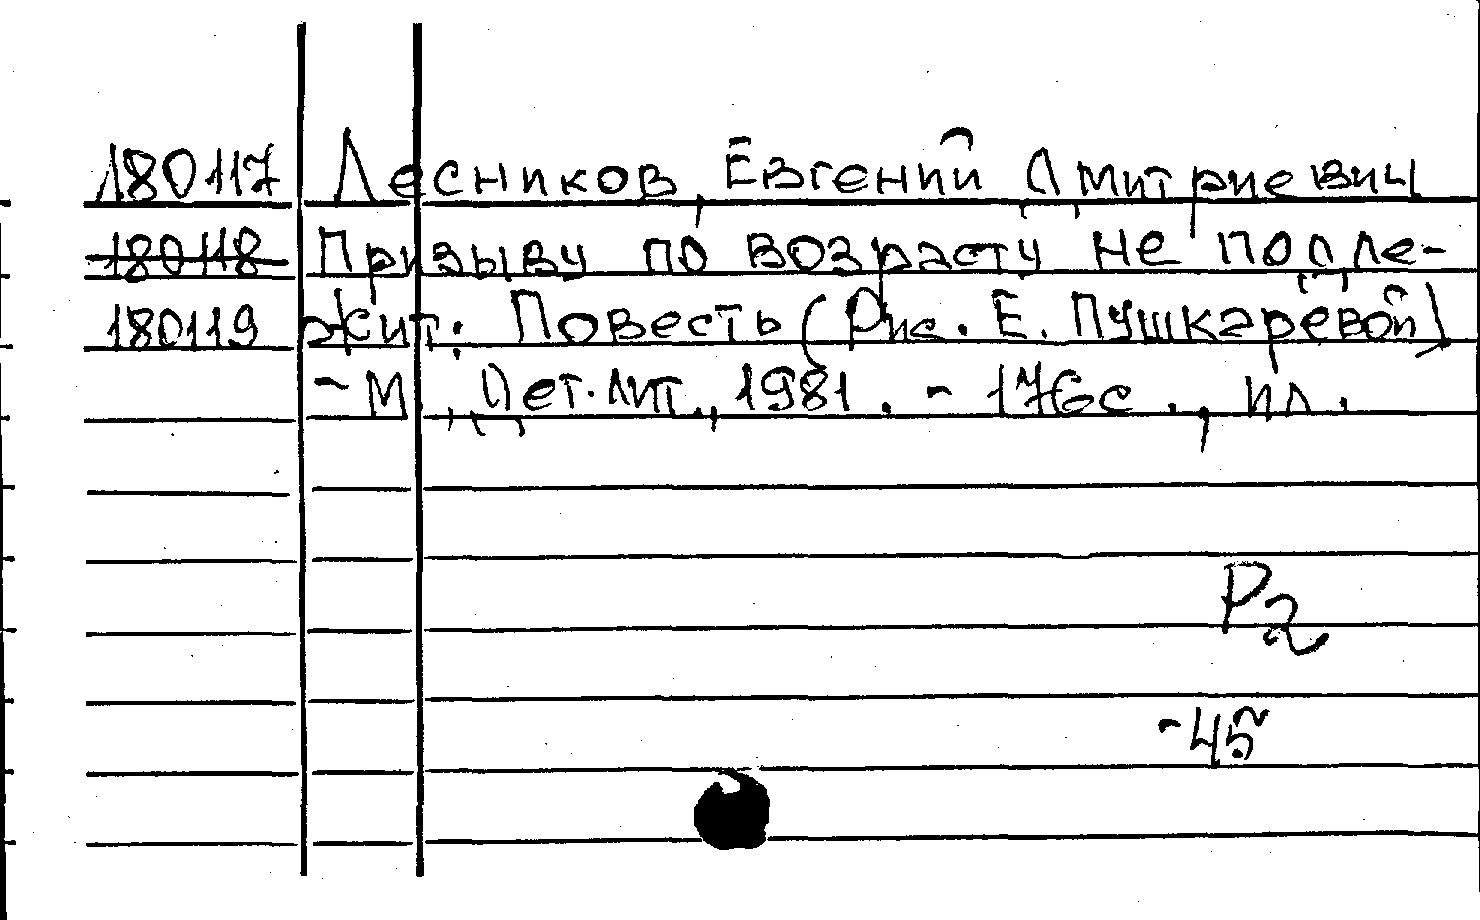 180117 Лесников, Евгений Дмитриевич
180118 Призыву по возрасту не подле-
180119 жит: Повесть (Рис. Е. Пушкарёвой)
- М., Дет. лит., 1981. - 176с., ил.
Р2
-45